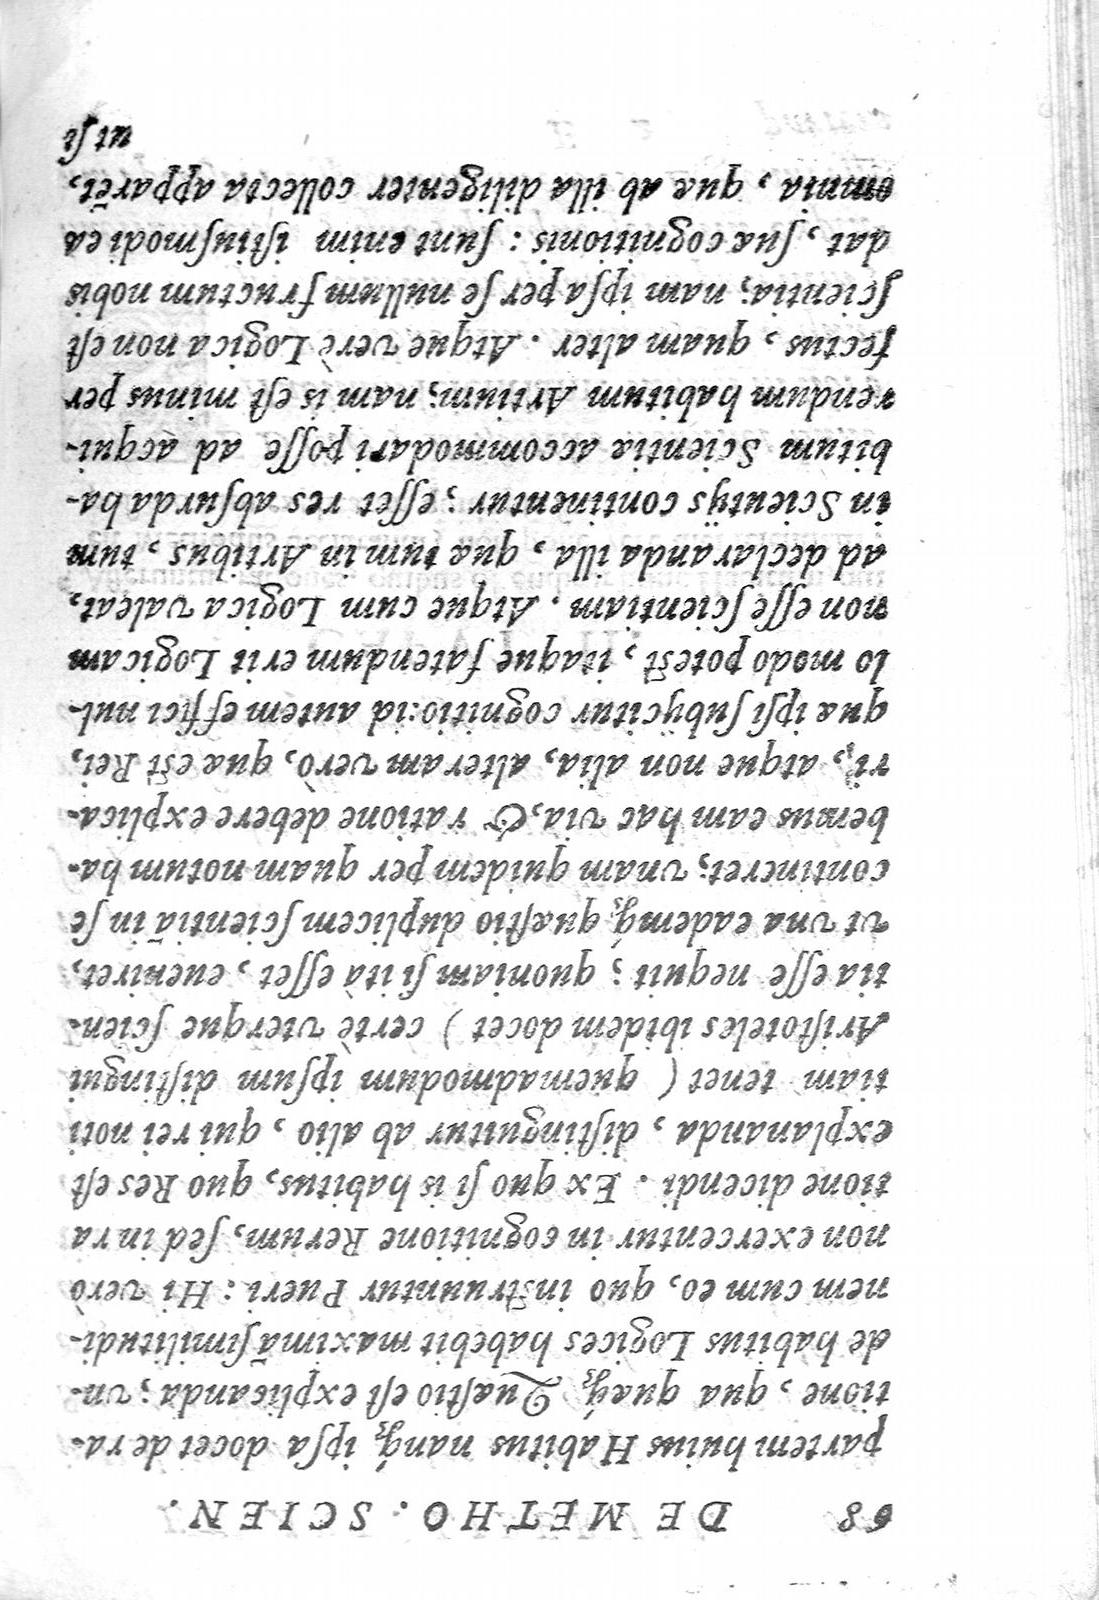 68 DE METHO. SCIEN.
partem huius Habitus nanq́; ipsa docet de ra-
tione, qua quæq́; Quæstio est explicanda; vn-
de habitus Logices habebit maximã similitudi-
nem cum eo, quo instruuntur Pueri: Hi verò
non exercentur in cognitione Rerum, sed in ra
tione dicendi. Ex quo si is habitus, quo Res est
explananda, distinguitur ab alio, qui rei noti
tiam tenet ( quemadmodum ipsum distingui
Aristoteles ibidem docet ) certè vterque scien-
tia esse nequit; quoniam si ita esset, eueniret,
vt vna eademq́; quæstio duplicem scientiã in se
contineret; vnam quidem per quam notum ha-
bemus eam hac via, & ratione debere explica-
ri, atque non alia, alteram verò, quæ est Rei,
quæ ipsi subijcitur cognitio: id autem effici nul-
lo modo potest, itaque fatendum erit Logicam
non esse scientiam. Atque cum Logica valeat,
ad declaranda illa, quæ tum in Artibus, tum
in Scientijs continentur; esset res absurda ha-
bitum Scientiæ accommodari posse ad acqui-
rendum habitum Artium; nam is est minus per
fectus, quam alter. Atque verè Logica non est
scientia; nam ipsa per se nullum fructum nobis
dat, suæ cognitionis: sunt enim istiusmodi ea
omnia, quæ ab illa diligenter collecta apparẽt,
ut si